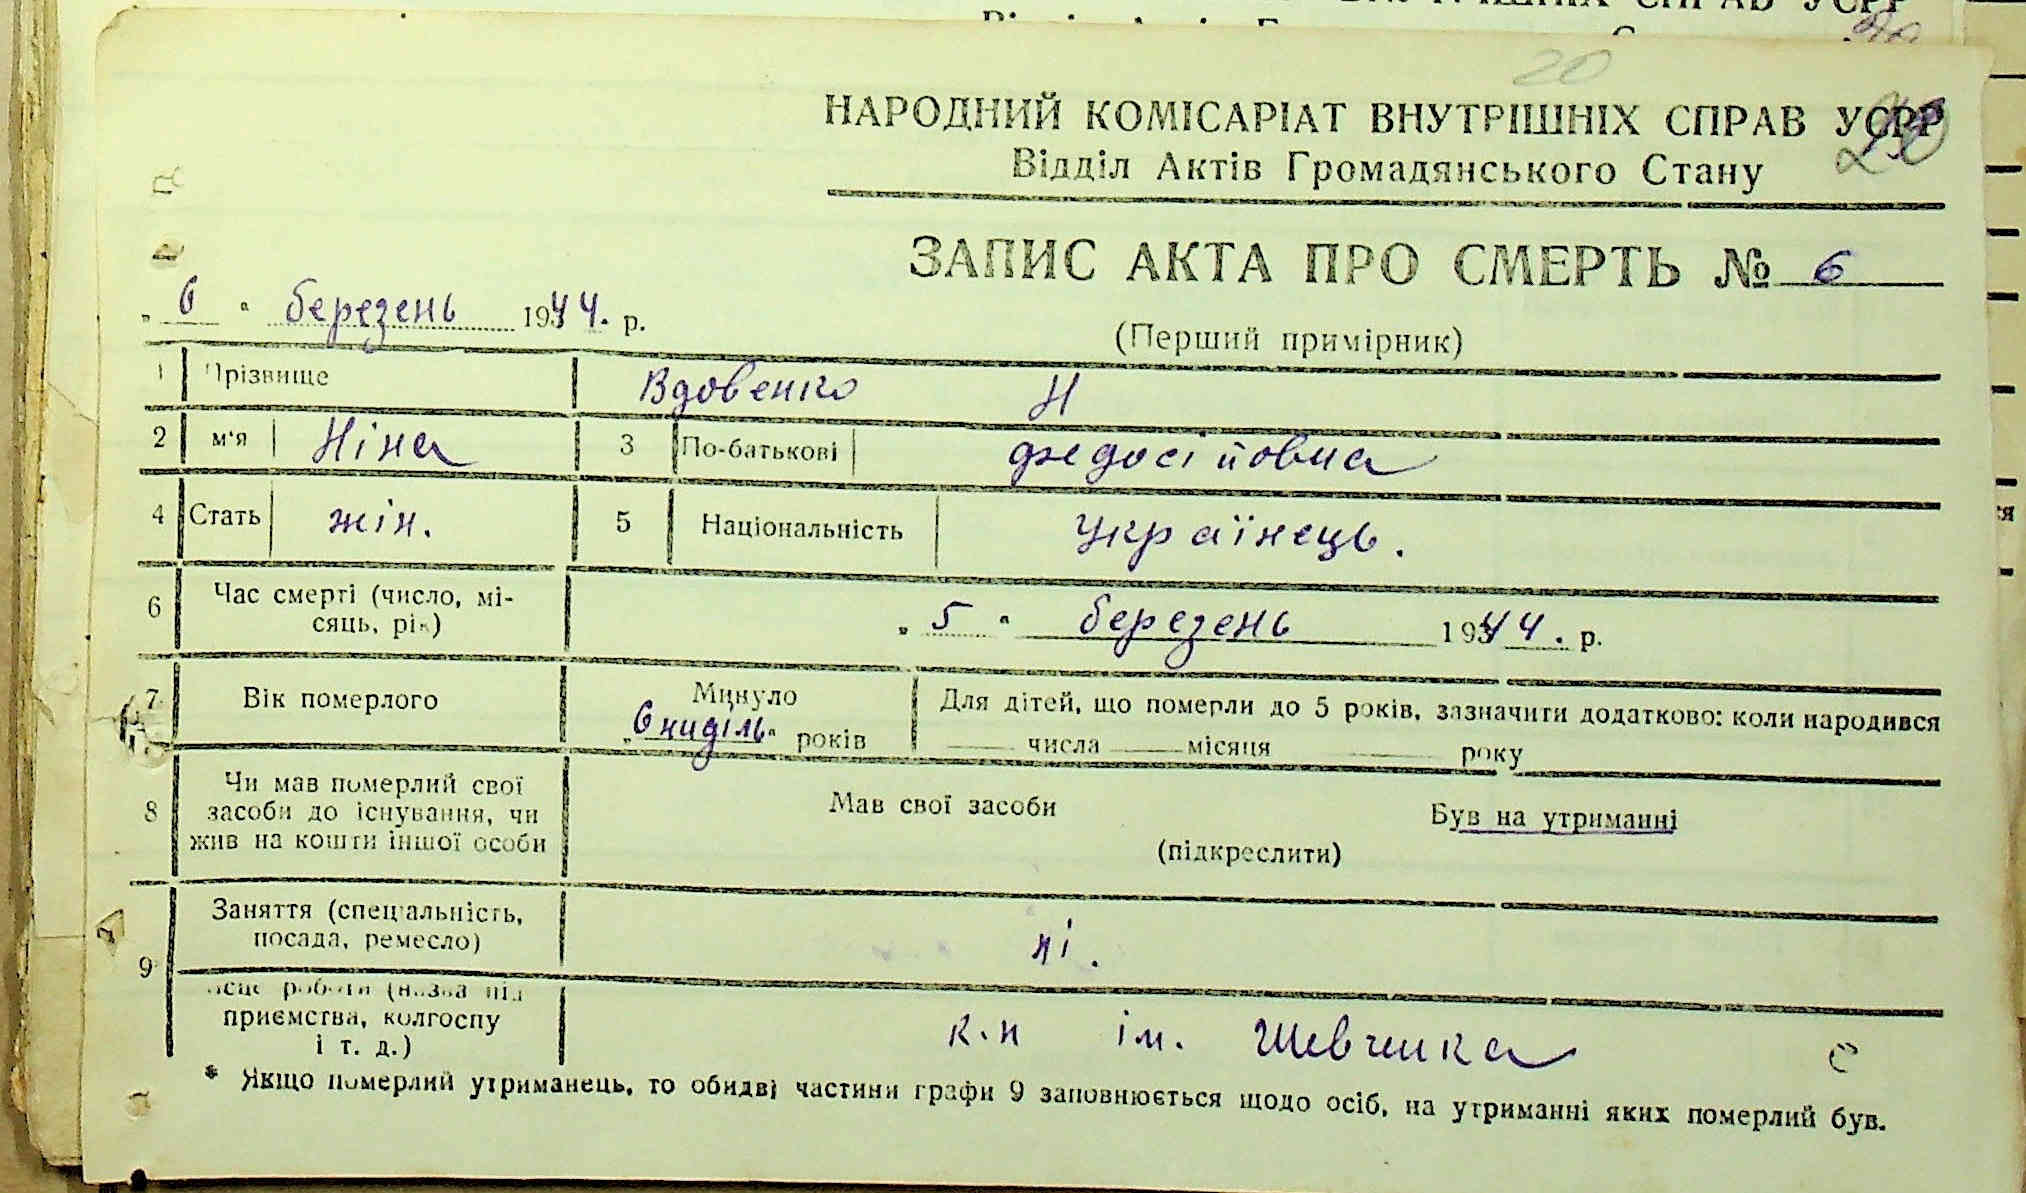 20
НАРОДНИЙ КОМІСАРІАТ ВНУТРІШНІХ СПРАВ УСРР
Відділ Актів Громадянського Стану
ЗАПИС АКТА ПРО СМЕРТЬ № 6
„ 6 " березень 1944. р.
(Перший примірник)
1 Прізвище Вдовенко Н
2 м'я Ніна 3 По-батькові Федосійовна
4 Стать жін. 5 Національність Українець.
6 Час смерті (число, мі-
сяць, рік) „ 5 " березень 1944. р.
7 Вік померлого Минуло „6 ниділь" років Для дітей, що померли до 5 років, зазначити додатково: коли народився
числа місяця року
8 Чи мав померлий свої
засоби до існування, чи
жив на кошти іншої особи
Мав свої засоби Був на утриманні
(підкреслити)
9 Заняття (спеціальність,
посада, ремесло) ні.
ісце роботи (назва під
приємства, колгоспу
і т. д.) к.н ім. Шевченка
* Якщо померлий утриманець, то обидві частини графи 9 заповнюється щодо осіб, на утриманні яких померлий був.